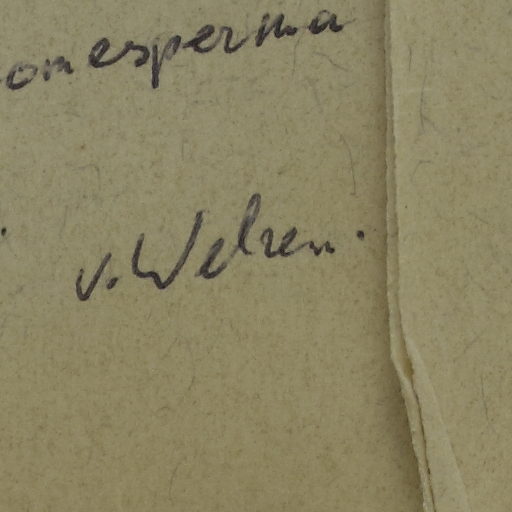 omesperma
v. Welzen.